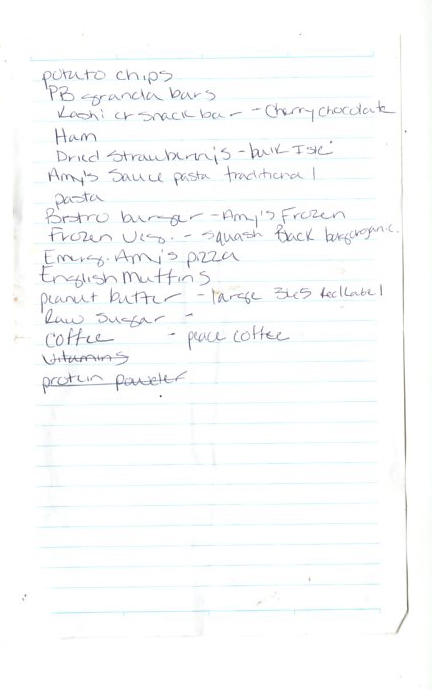 potato chips
PB granola bars
Kashi cr snack bar - Cherry chocolate
Ham
Dried Strawberris - bulk Isle
Amy's Sauce pasta traditional
pasta
Bistro burger - Amy's Frozen
Frozen Veg. - squash Back organic.
Emerg. Amy's pizza
English Muffins
peanut butter - large 365 Red Label
Raw Suggar -
Coffee - peace coffee
vitamins
protein powder